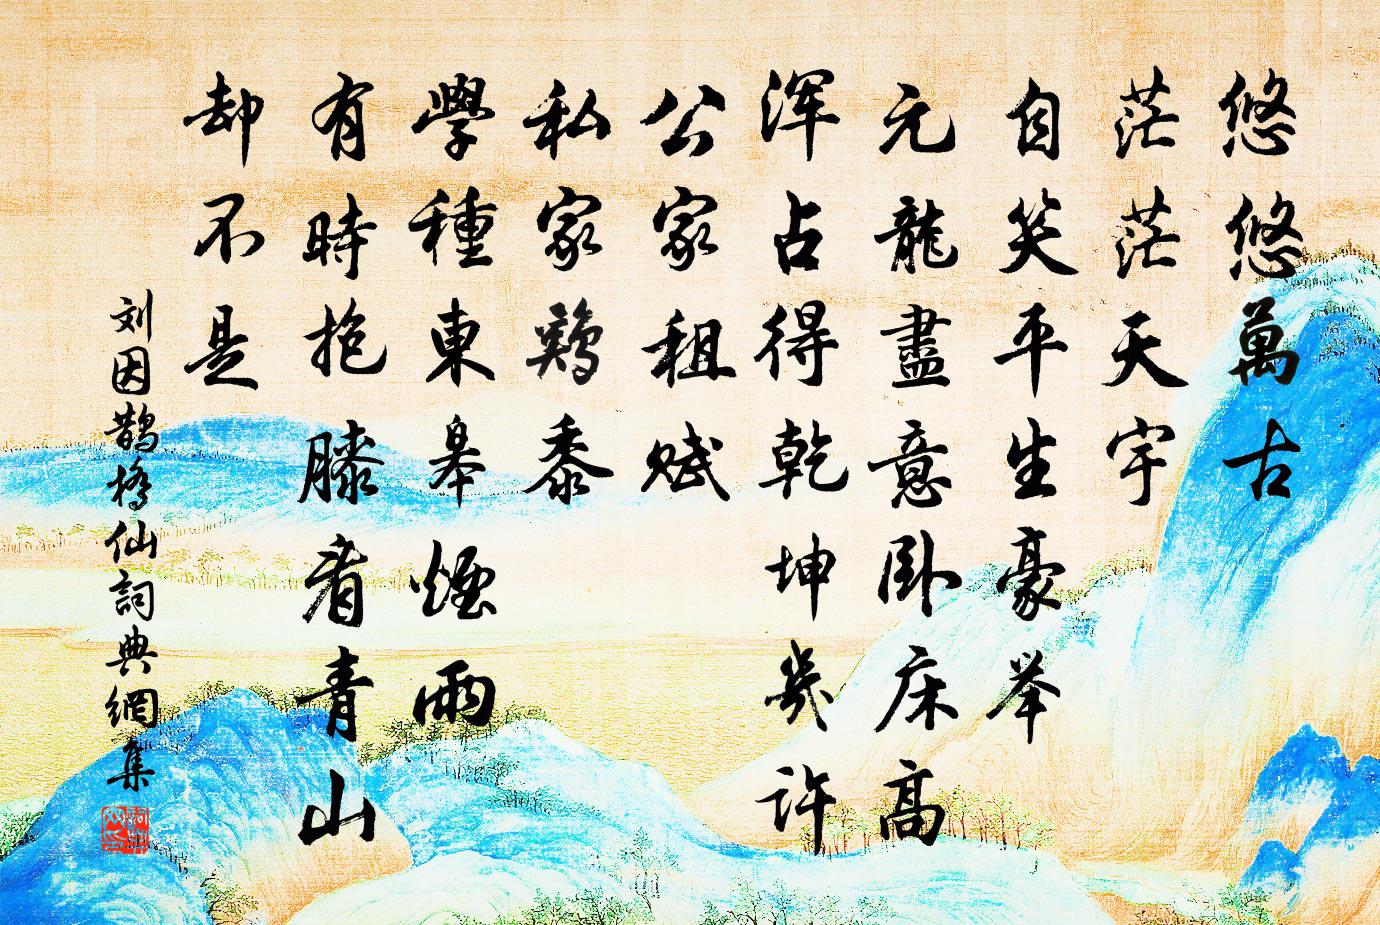 悠悠萬古
茫茫天宇
自笑平生豪举
元龍盡意卧床高
浑占得乾坤幾许
公家租赋
私家鷄黍
學種東皋煙雨
有時抱膝看青山
却不是
刘因鹊橋仙詞典網集